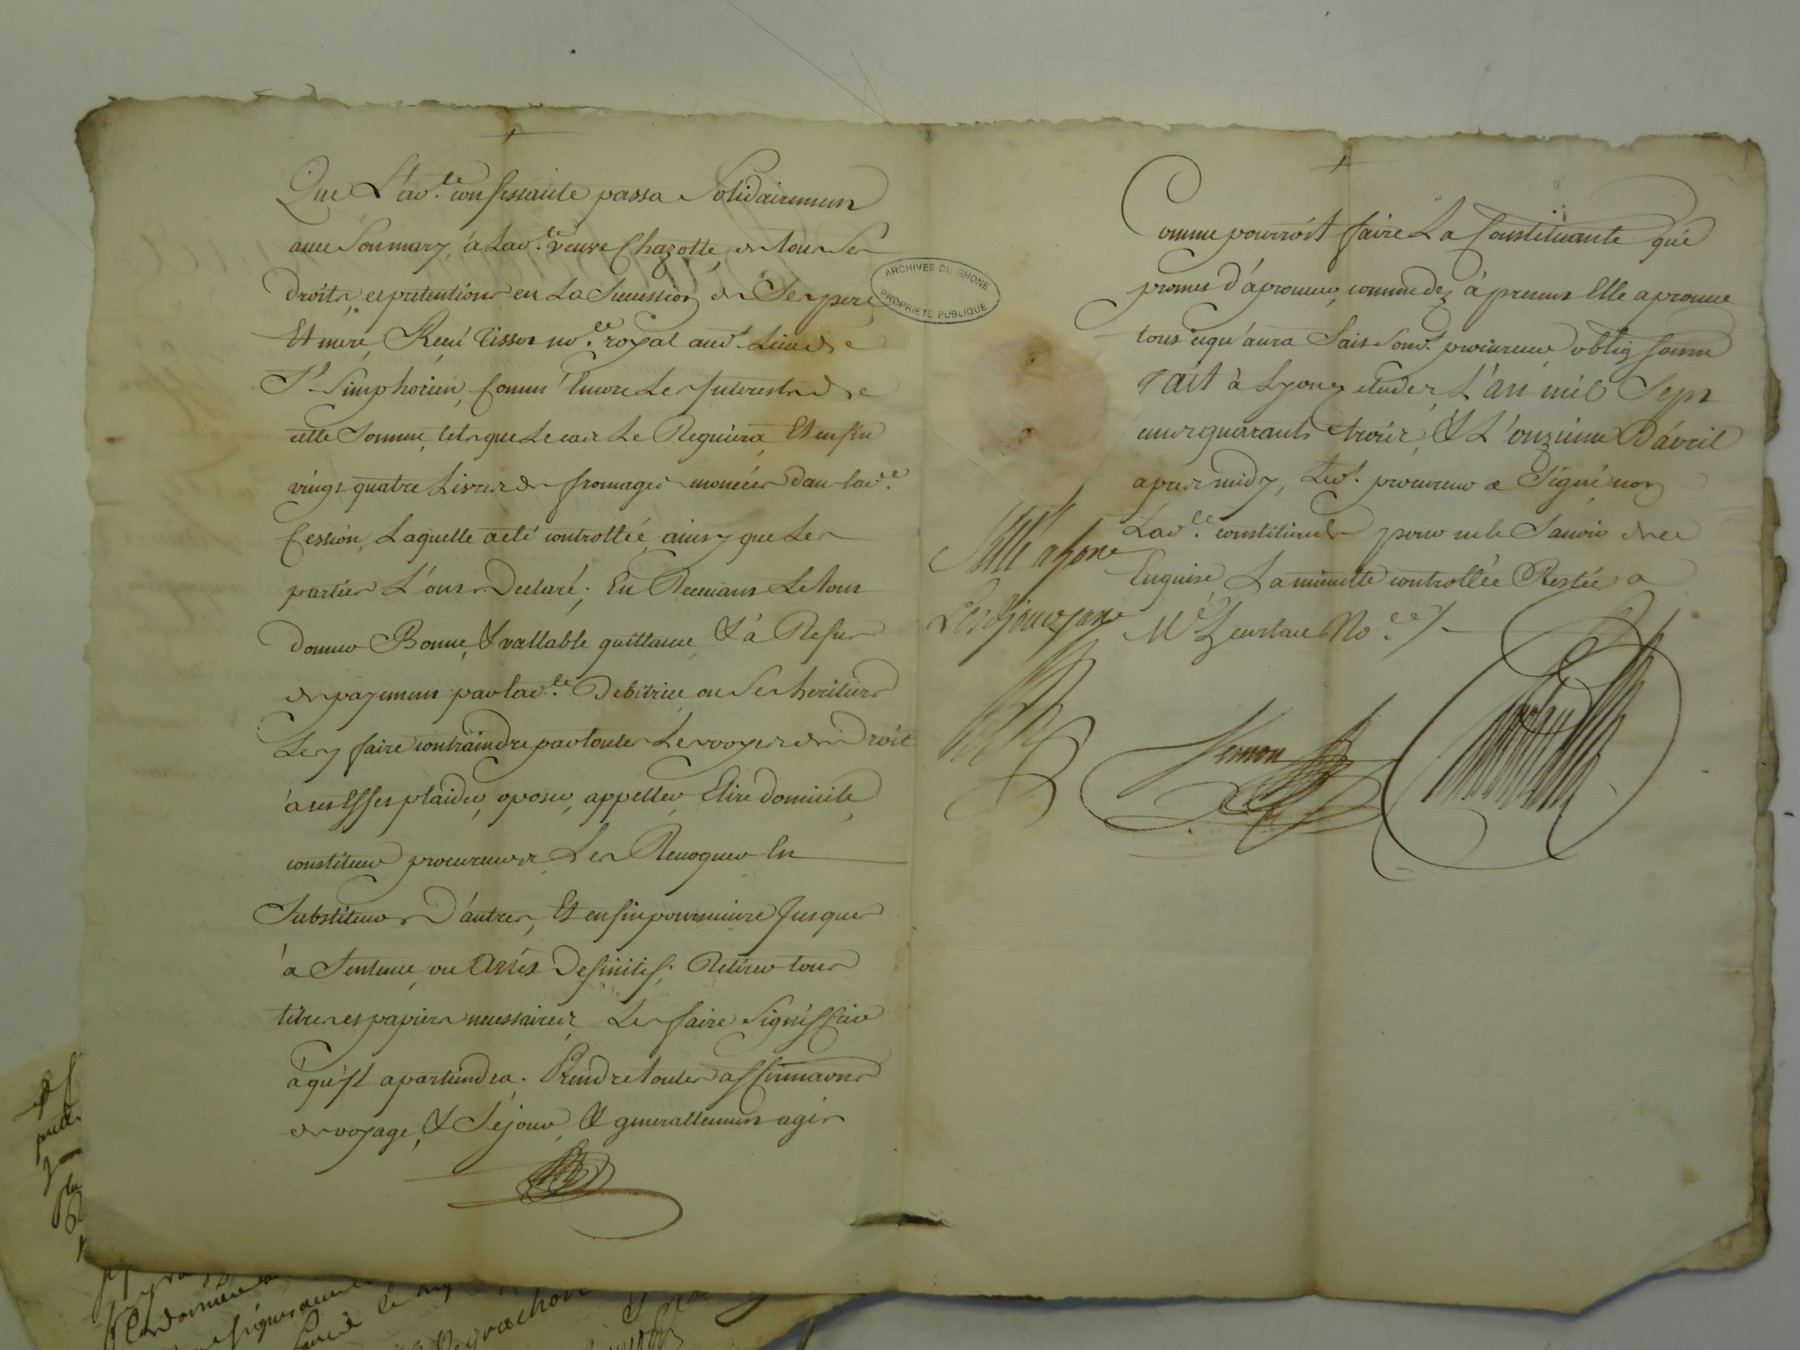 Que Lad.te confessante passa Solidairement
avec Son mary, à Lad.te veuve Chazotte, de tous Ses
droits, et pretentions en La Succession de Ses pere
Et mere, Reçu Tissot no.re royal aud. Lieu de
S.t Simphorien, comm' Encore Les Interests de
cette Somme, tels que Le cas Le Requiera, Et enfin
vingt quatre Livres de fromages enoncées dans lad.te
Cession, Laquelle a eté controllée, ainsy que Les
parties L'ont Declaré; En Recevant Le tout
donner Bonne, & vallable quittance, & à Refus
de payement par lad.te Debitrice ou Ses heritiers
Les y faire contraindre par toutes Les voyes de Droit
à ces Effets plaider, oposer, appeller, Elire domicile,
constituer procureurs, Les Revoquer En
Substituer D'autres, Et enfin poursuivre Jusques
à Sentence, ou Arrêt Definitif; Retirer tous
titres et papiers necessaires, Les faire Signiffier
à qu'Il apartiendra. Prendre toutes affirmations
de voyage, & Séjour, & generallement agir
ARCHIVES DU RHONE
PROPRIETE PUBLIQUE
Comme pourroit faire La Constituante qui
promet d'aprouver, comme dez à present Elle aprouve
tout ce qu'aura fait Sond. procureur oblig
Fait à Lyon, etude, L'an mil Sept
cent quarante trois, & L'onzieme D'avril
apres midy, Led. procureur a Signé non
Lad.te constituante pour ne le Savoir de ce
Enquise, La minutte controllée Restée a
M.e No.re
Vernon